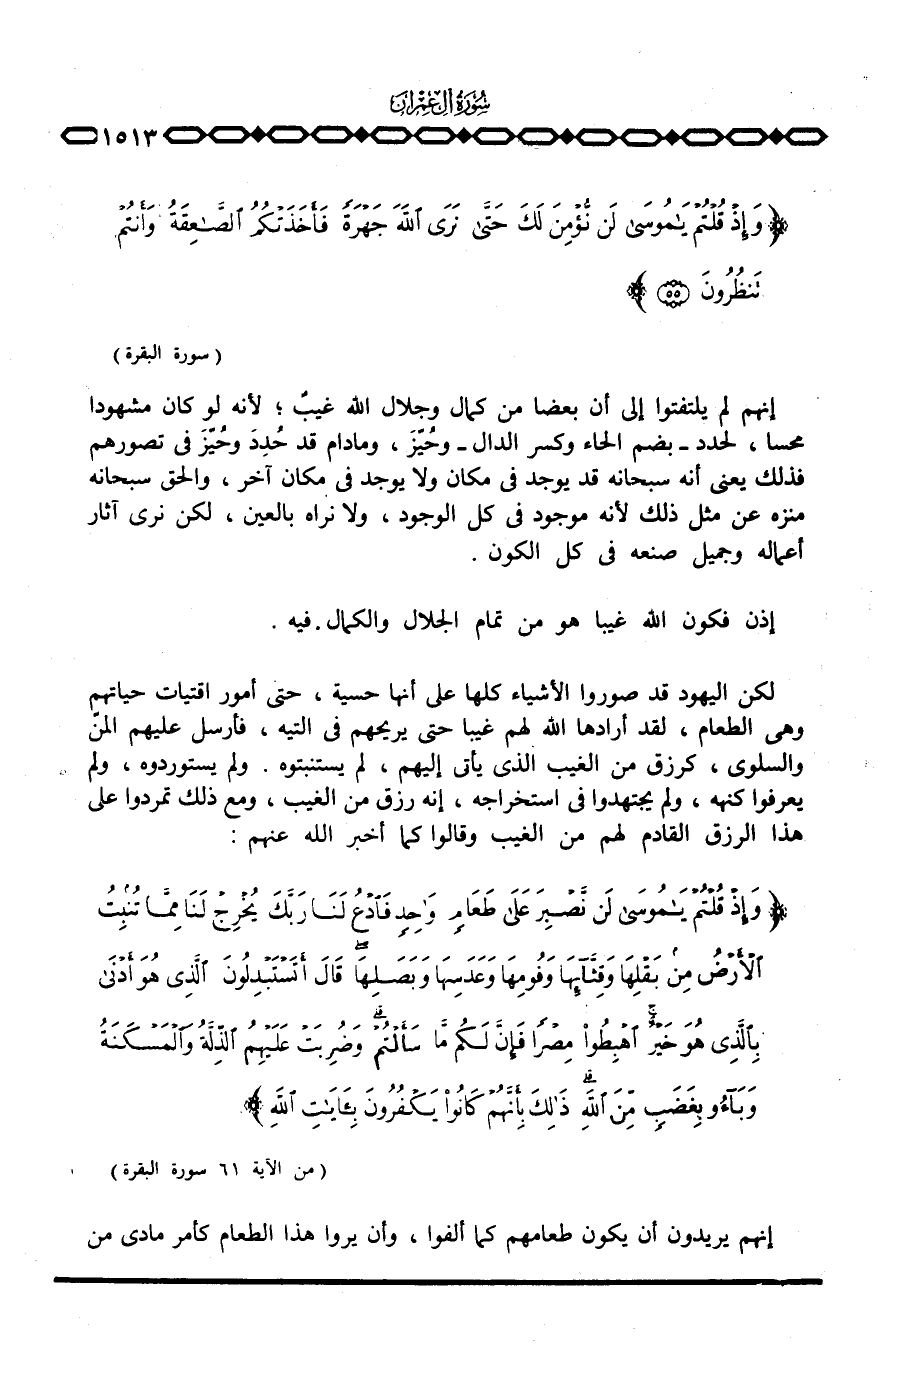 سورة آل عمران
١٥١٣
﴿ وَإِذْ قُلْتُمْ يَـٰمُوسَىٰ لَن نُّؤْمِنَ لَكَ حَتَّىٰ نَرَى ٱللَّهَ جَهْرَةً فَأَخَذَتْكُمُ ٱلصَّـٰعِقَةُ وَأَنتُمْ
تَنظُرُونَ ۝٥٥ ﴾
( سورة البقرة )
إنهم لم يلتفتوا إلى أن بعضا من كمال وجلال الله غيبٌ ؛ لأنه لو كان مشهودا
محسا ، لحدد ـ بضم الحاء وكسر الدال ـ وحُيِّزَ ، ومادام قد حُدِدَ وحُيِّزَ فى تصورهم
فذلك يعنى أنه سبحانه قد يوجد فى مكان ولا يوجد فى مكان آخر ، والحق سبحانه
منزه عن مثل ذلك لأنه موجود فى كل الوجود ، ولا نراه بالعين ، لكن نرى آثار
أعماله وجميل صنعه فى كل الكون .
إذن فكون الله غيبا هو من تمام الجلال والكمال . فيه .
لكن اليهود قد صوروا الأشياء كلها على أنها حسية ، حتى أمور اقتيات حياتهم
وهى الطعام ، لقد أرادها الله لهم غيبا حتى يريحهم فى التيه ، فأرسل عليهم المنّ
والسلوى ، كرزق من الغيب الذى يأتى إليهم ، لم يستنبتوه . ولم يستوردوه ، ولم
يعرفوا كنهه ، ولم يجتهدوا فى استخراجه ، إنه رزق من الغيب ، ومع ذلك تمردوا على
هذا الرزق القادم لهم من الغيب وقالوا كما أخبر الله عنهم :
﴿ وَإِذْ قُلْتُمْ يَـٰمُوسَىٰ لَن نَّصْبِرَ عَلَىٰ طَعَامٍ وَٰحِدٍ فَٱدْعُ لَنَا رَبَّكَ يُخْرِجْ لَنَا مِمَّا تُنۢبِتُ
ٱلْأَرْضُ مِنۢ بَقْلِهَا وَقِثَّآئِهَا وَفُومِهَا وَعَدَسِهَا وَبَصَلِهَا ۖ قَالَ أَتَسْتَبْدِلُونَ ٱلَّذِى هُوَ أَدْنَىٰ
بِٱلَّذِى هُوَ خَيْرٌ ۚ ٱهْبِطُوا۟ مِصْرًا فَإِنَّ لَكُم مَّا سَأَلْتُمْ ۗ وَضُرِبَتْ عَلَيْهِمُ ٱلذِّلَّةُ وَٱلْمَسْكَنَةُ
وَبَآءُو بِغَضَبٍ مِّنَ ٱللَّهِ ۗ ذَٰلِكَ بِأَنَّهُمْ كَانُوا۟ يَكْفُرُونَ بِـَٔايَـٰتِ ٱللَّهِ ﴾
( من الآية ٦١ سورة البقرة )
إنهم يريدون أن يكون طعامهم كما ألفوا ، وأن يروا هذا الطعام كأمر مادى من